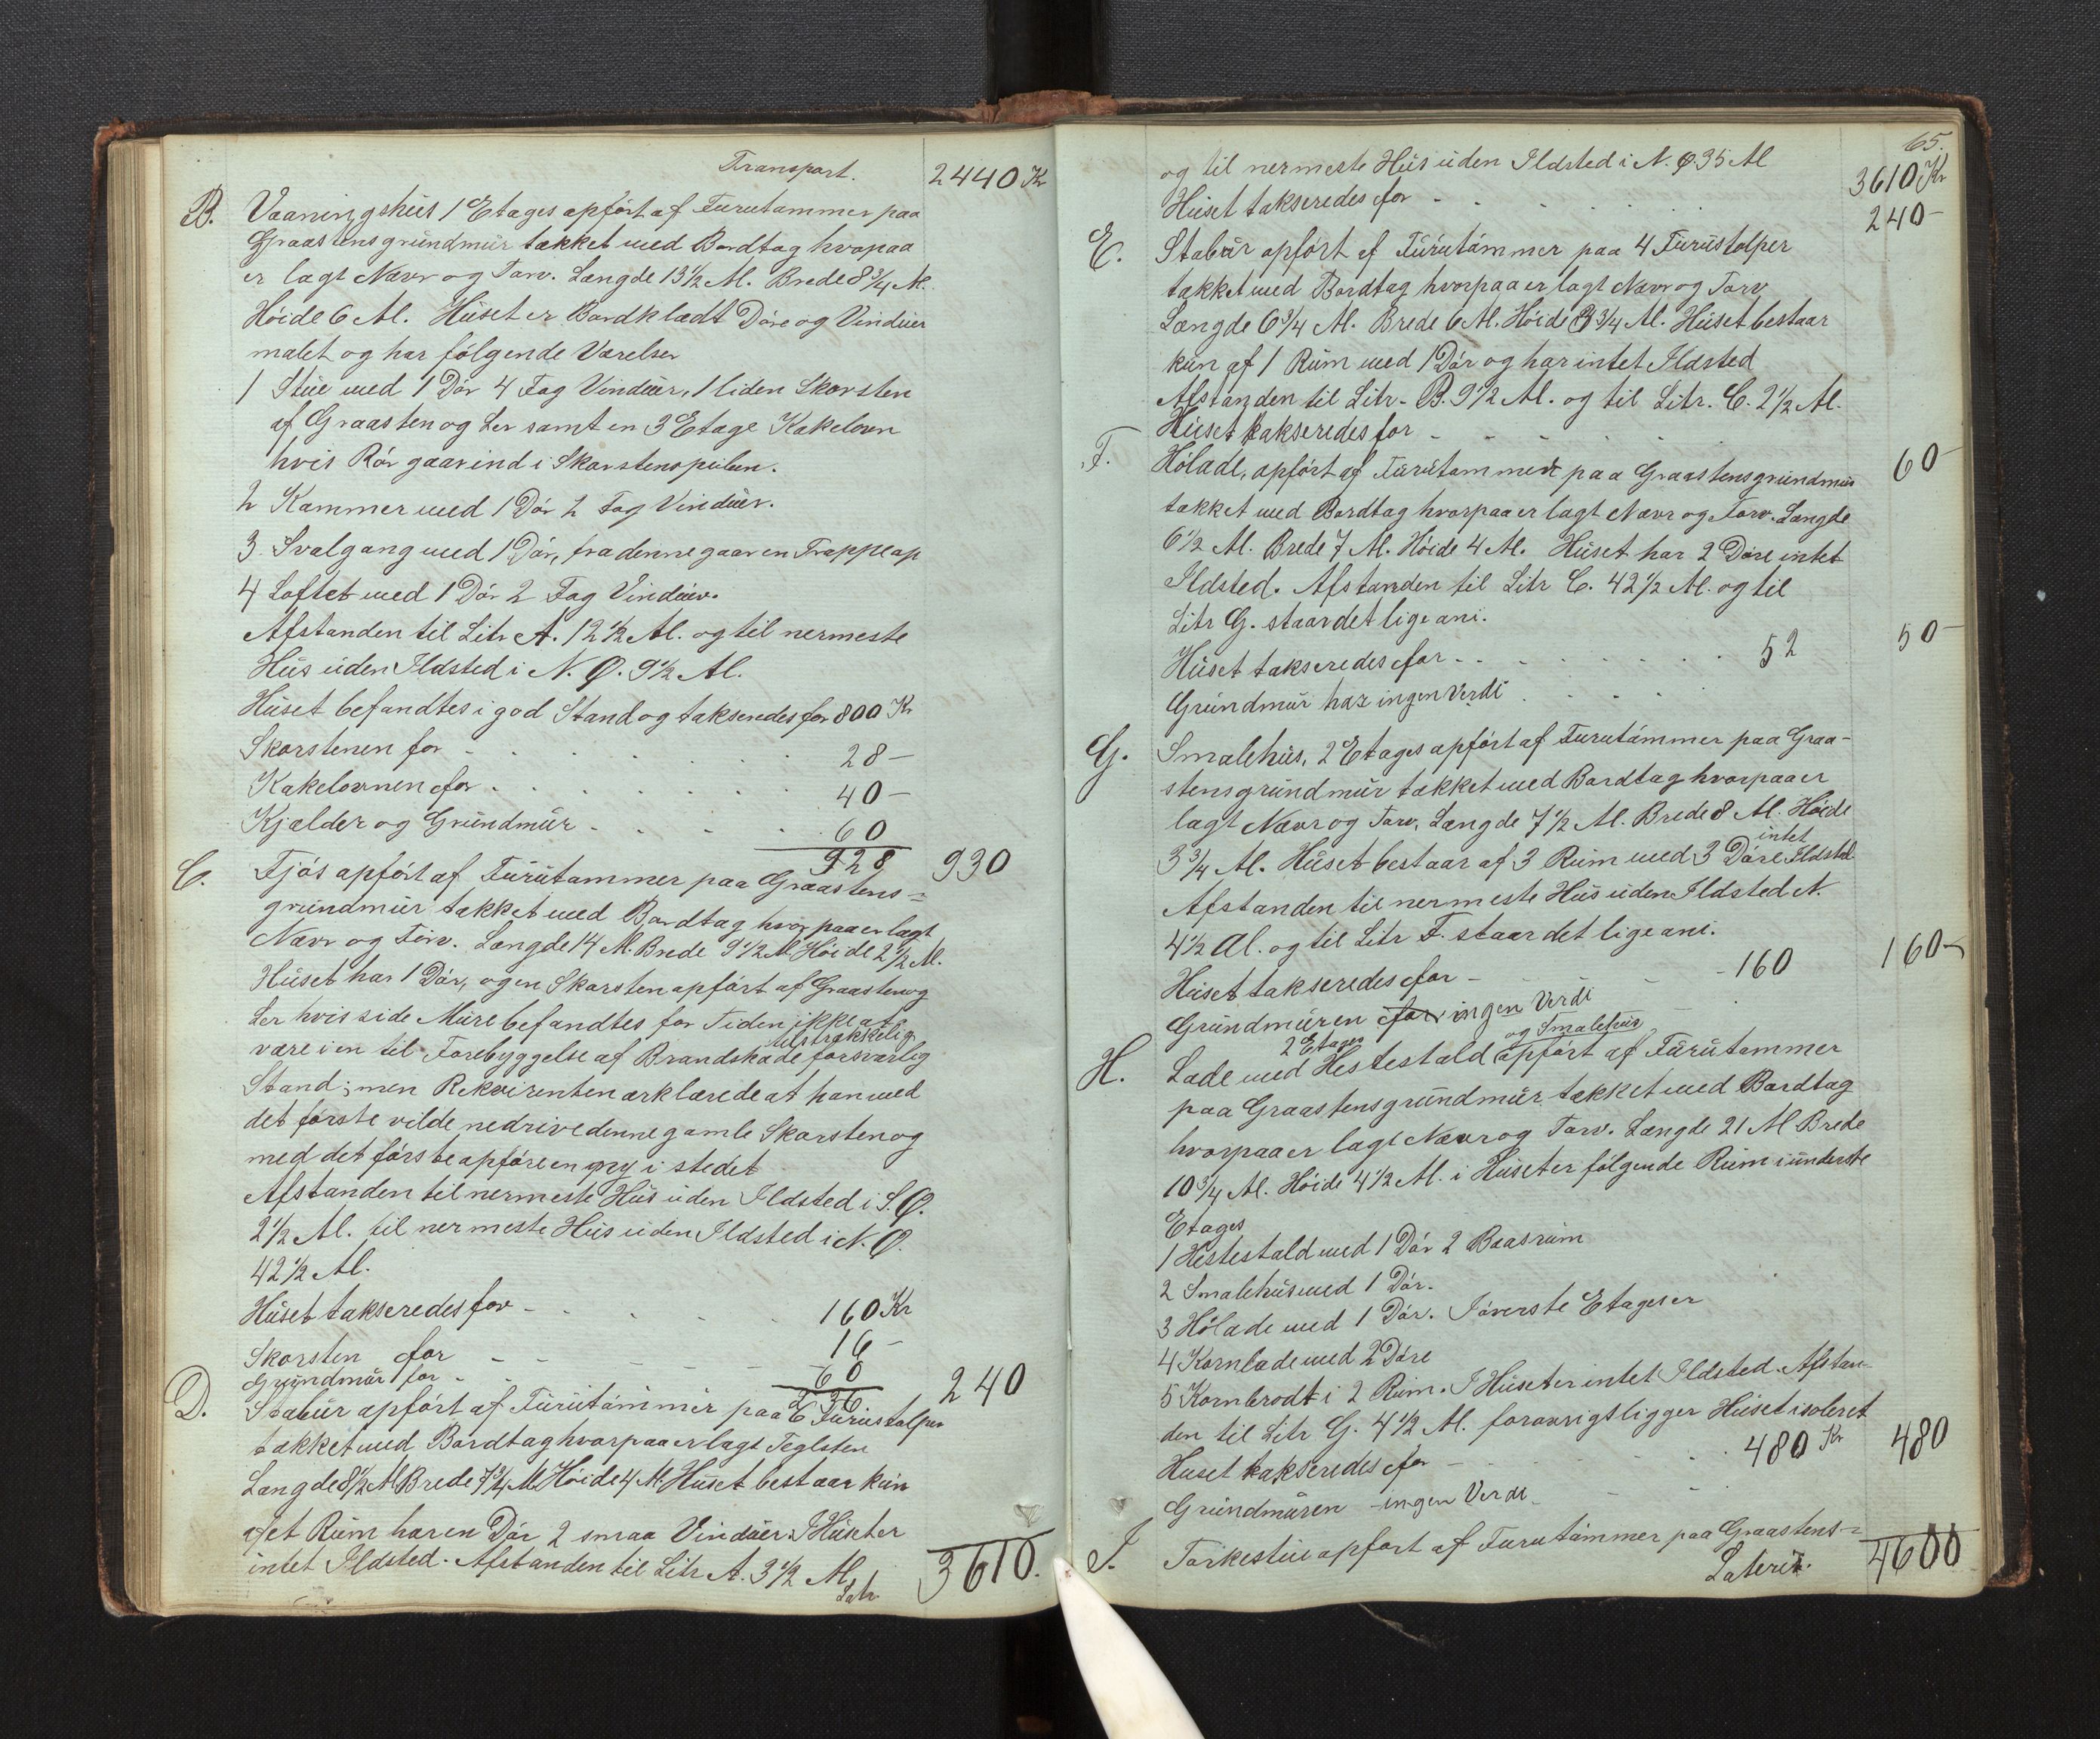 Transport. 2440 Kr
B. Vaaningshus 1 Etages opført af Furutømmer paa
Graastensgrundmur tækket med Bordtag hvorpaa
er lagt Nævr og Torv. Længde 13 1/2 Al. Brede 8 3/4 Al.
Høide 6 Al. Huset er Bordklædt Døre og Vinduer
malet og har følgende Værelser
1 Stue med 1 Dør 4 Fag Vinduer, 1 liden Skorsten
af Graasten og Ler samt en 3 Etage Kakelovn
hvis Rør gaar ind i Skorstenspiben.
2 Kammer med 1 Dør 2 Fag Vinduer.
3. Svalgang med 1 Dør, fra denne gaar en Trappe op
4 Loftet med 1 Dør 2 Fag Vinduer.
Afstanden til Litr A. 12 1/2 Al. og til nermeste
Hus uden Ildsted i N. Ø. 9 1/2 Al.
Huset befandtes i god Stand og takseredes for 800 Kr
Skorstenen for 28 –
Kakelovnen for 40 –
Kjælder og Grundmur 60
928 930
C. Fjøs opført af Furutømmer paa Graastens=
grundmur tækket med Bordtag hvorpaa er lagt
Nævr og Torv. Længde 14 Al. Brede 9 1/2 Al Høide 2 1/2 Al.
Huset har 1 Dør, og en Skorsten opført af Graasten og
Ler hvis side Mure befandtes for Tiden ikke at
være i en til Forebyggelse af Brandskade tilstrækkelig forsvarlig
Stand; men Rekvirenten erklærede at han med
det første vilde nedrive denne gamle Skorsten og
med det første opføre en ny i stedet
Afstanden til nermeste Hus uden Ildsted i S. Ø.
2 1/2 Al. til nermeste Hus uden Ildsted i N. Ø.
42 1/2 Al.
Huset takseredes for 160 Kr
Skorsten for 16 –
Grundmur for 60
236 240
D. Stabur opført af Furutømmer paa 6 Furustolper
tækket med Bordtag hvorpaa er lagt Teglsten
Længde 8 1/2 Al Brede 7 3/4 Al Høide 4 Al. Huset bestaar kun
af et Rum har en Dør 2 smaa Vinduer. I Huset er
intet Ildsted. Afstanden til Litr A. 3 1/2 Al
Latr 3610.
65.
og til nermeste Hus uden Ildsted i N. Ø 35 Al 3610 Kr
Huset takseredes for 240 –
E. Stabur opført af Furutømmer paa 4 Furustolper
tækket med Bordtag hvorpaa er lagt Nævr og Torv
Længde 6 3/4 Al. Brede 6 Al. Høide 3 3/4 Al. Huset bestaar
kun af 1 Rum med 1 Dør og har intet Ildsted
Afstanden til Litr. B. 9 1/2 Al. og til Litr. C. 2 1/2 Al.
Huset takseredes for 60 –
F. Hølade, opført af Furutømmer paa Graastensgrundmur
tækket med Bordtag hvorpaa er lagt Nævr og Torv. Længde
6 1/2 Al. Brede 7 Al. Høide 4 Al. Huset har 2 Døre intet
Ildsted. Afstanden til Litr C. 42 1/2 Al. og til
Litr G. staar det lige ani.
Huset takseredes for 52 50 –
Grundmur har ingen Verdi
G. Smalehus, 2 Etages opført af Furutømmer paa Graa-
stensgrundmur tækket med Bordtag hvorpaa er
lagt Nævr og Torv, Længde 7 1/2 Al. Brede 8 Al. Høide
3 3/4 Al. Huset bestaar af 3 Rum med 3 Døre intet Ildsted
Afstanden til nermeste Hus uden Ildsted N.
4 1/2 Al. og til Litr F. staar det lige ani.
Huset takseredes for 160 160 –
Grundmuren for ingen Verdi
H. 2 Etages Lade med Hestestald og Smalehus opført af Furutømmer
paa Graastensgrundmur tækket med Bordtag
hvorpaa er lagt Nævr og Torv. Længde 21 Al Brede
10 3/4 Al. Høide 4 1/2 Al. i Huset er følgende Rum i underste
Etages
1 Hestestald med 1 Dør 2 Baasrum
2 Smalehus med 1 Dør.
3 Hølade med 1 Dør. I øverste Etages er
4 Kornlade med 2 Døre
5 Kornbrodt i 2 Rum. I Huset er intet Ildsted. Afstan-
den til Litr G. 4 1/2 Al. forøvrigt ligger Huset isoleret
Huset takseredes for 480 Kr 480
Grundmuren – ingen Verdi
I. Tørkestue opført af Furutømmer paa Graastens-
Lateris. 4600